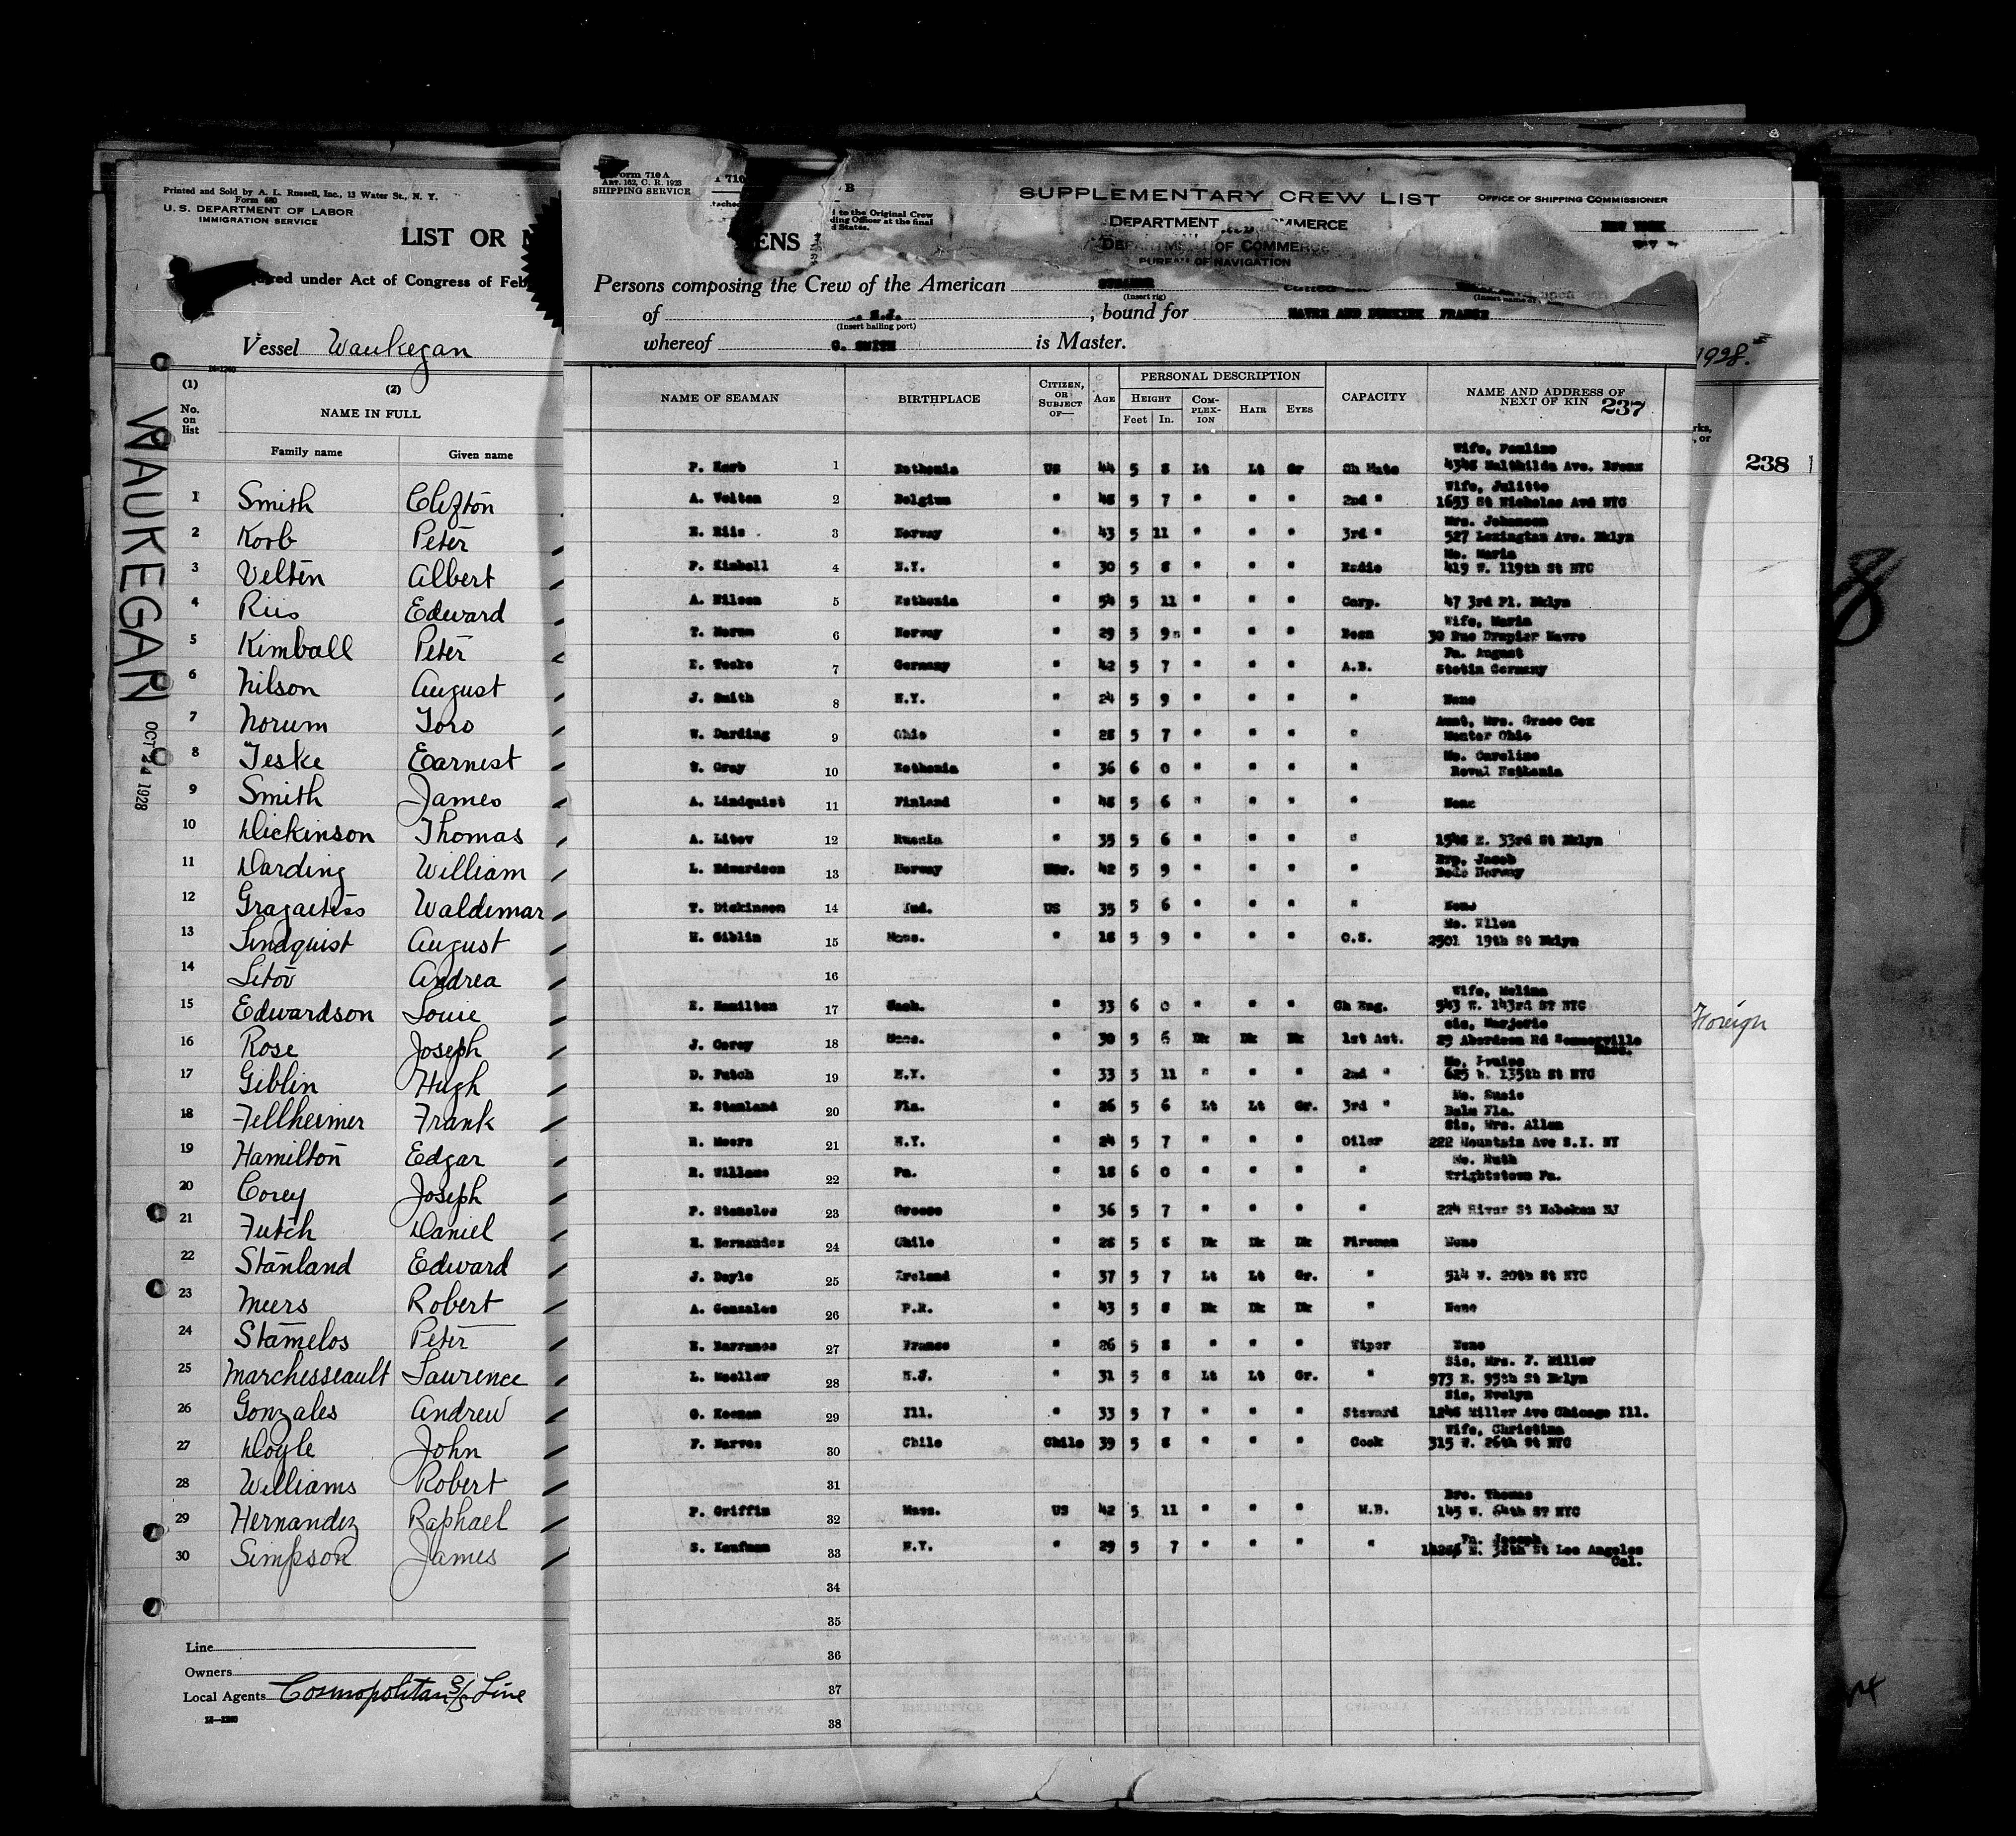 Printed and Sold by A. L. Russell, Inc., 13 Water St., N. Y.
Form 680
U. S. DEPARTMENT OF LABOR
IMMIGRATION SERVICE
LIST OR
under Act of Congress of Feb
Vessel Waukegan
WAUKEGAN
OCT 24 1928
(1) (2)
No. on list NAME IN FULL
Family name Given name
1 Smith Clifton
2 Korb Peter
3 Velten Albert
4 Riis Edward
5 Kimball Peter
6 Nilson August
7 Norum Toro
8 Teske Earnest
9 Smith James
10 Dickinson Thomas
11 Darding William
12 Waldemar
13 Lindquist August
14 Litov Andrea
15 Edwardson Louie
16 Rose Joseph
17 Giblin Hugh
18 Fellheimer Frank
19 Hamilton Edgar
20 Corey Joseph
21 Futch Daniel
22 Stanland Edward
23 Meers Robert
24 Stamelos Peter
25 Marchesseault Lawrence
26 Gonzales Andrew
27 Doyle John
28 Williams Robert
29 Hernandez Raphael
30 Simpson James
Line
Owners
Local Agents Cosmopolitan S/S Line
Form 710 A
Art. 162, C. R. 1923
SHIPPING SERVICE
710
B
ENS
to the Original Crew
ding Officer at the final
d States.
SUPPLEMENTARY CREW LIST
OFFICE OF SHIPPING COMMISSIONER
NEW YORK
DEPARTMENT OMMERCE
DEPARTMENT OF COMMERCE
BUREAU OF NAVIGATION
Persons composing the Crew of the American STEAMER
(Insert rig)
of N.J. , bound for HAVRE AND DUNKIRK FRANCE
(Insert hailing port)
whereof C. SMITH is Master.
NAME OF SEAMAN BIRTHPLACE CITIZEN, OR SUBJECT OF— AGE PERSONAL DESCRIPTION CAPACITY NAME AND ADDRESS OF NEXT OF KIN 237
HEIGHT COMPLEXION HAIR EYES
Feet In.
Wife, Pauline
P. Korb 1 Esthonia US 44 5 8 Lt Lt Gr Ch Mate Ave. Bronx
Wife, Julitte
A. Velten 2 Belgium " 48 5 7 " " " 2nd " 1653 St Nicholas Ave NYC
Mrs. Johansen
E. Riis 3 Norway " 43 5 11 " " " 3rd " 527 Lexington Ave. Bklyn
Mo. Marie
P. Kimball 4 N.Y. " 30 5 8 " " " Radio 419 W. 119th St NYC
A. Nilson 5 Esthonia " 54 5 11 " " " Carp. 47 3rd Pl. Bklyn
Wife, Maria
T. Norum 6 Norway " 29 5 9 " " " Bosn 30 Rue Drapier Havre
Fa. August
E. Teske 7 Germany " 42 5 7 " " " A.B. Stetin Germany
J. Smith 8 N.Y. " 24 5 9 " " " " None
Aunt, Mrs. Grace Cox
W. Darding 9 Ohio " 28 5 7 " " " " Mentor Ohio
Mo. Caroline
W. Gray 10 Esthonia " 36 6 0 " " " " Reval Esthonia
A. Lindquist 11 Finland " 48 5 6 " " " " None
A. Litov 12 Russia " 35 5 6 " " " " 1546 E. 33rd St Bklyn
Jacob
L. Edwardson 13 Norway Nor. 42 5 9 " " " " Bodo Norway
T. Dickinson 14 Ind. US 35 5 6 " " " " None
Mo. Ellen
H. Giblin 15 Mass. " 18 5 9 " " " O.S. 2501 19th St Bklyn
16
Wife, Melina
E. Hamilton 17 Wash. " 33 6 0 " " " Ch Eng. 543 W. 143rd ST NYC
Sis, Marjorie
J. Corey 18 Mass. " 30 5 6 Dk Dk Dk 1st Ast. 29 Aberdeen Rd Sommerville
Mass.
Mo. Louise
D. Futch 19 N.Y. " 33 5 11 " " " 2nd " 625 W. 135th St NYC
Mo. Susie
E. Stanland 20 Fla. " 26 5 6 Lt Lt Gr. 3rd " Fla.
Sis, Mrs. Allen
R. Meers 21 N.Y. " 24 5 7 " " " Oiler 222 Mountain Ave S.I. NY
Mo. Ruth
R. Willams 22 Pa. " 18 6 0 " " " " Wrightstown Pa.
P. Stamelos 23 Greece " 36 5 7 " " " " 224 River St Hoboken NJ
R. Hernandez 24 Chile " 28 5 8 Dk Dk Dk Fireman None
J. Doyle 25 Ireland " 37 5 7 Lt Lt Gr. " 514 W. 20th St NYC
A. Gonzales 26 P.R. " 43 5 8 Dk Dk Dk " None
E. Barranos 27 France " 26 5 8 " " " Wiper None
Sis, Mrs. F. Miller
L. Moeller 28 N.J. " 31 5 8 Lt Lt Gr. " 973 E. 95th St Bklyn
Sis, Evelyn
G. Keenan 29 Ill. " 33 5 7 " " " Steward 1246 Miller Ave Chicago Ill.
Wife, Christina
F. Narves 30 Chile Chile 39 5 8 " " " Cook 315 W. 26th St NYC
31
Bro. Thomas
P. Griffin 32 Mass. US 42 5 11 " " " M.B. 145 W. 64th ST NYC
Fa. Joseph
S. Kaufman 33 N.Y. " 29 5 7 " " " " E. 38th St Los Angeles
Cal.
34
35
36
37
38
1928.
rks,
, or
238
Foreign
8